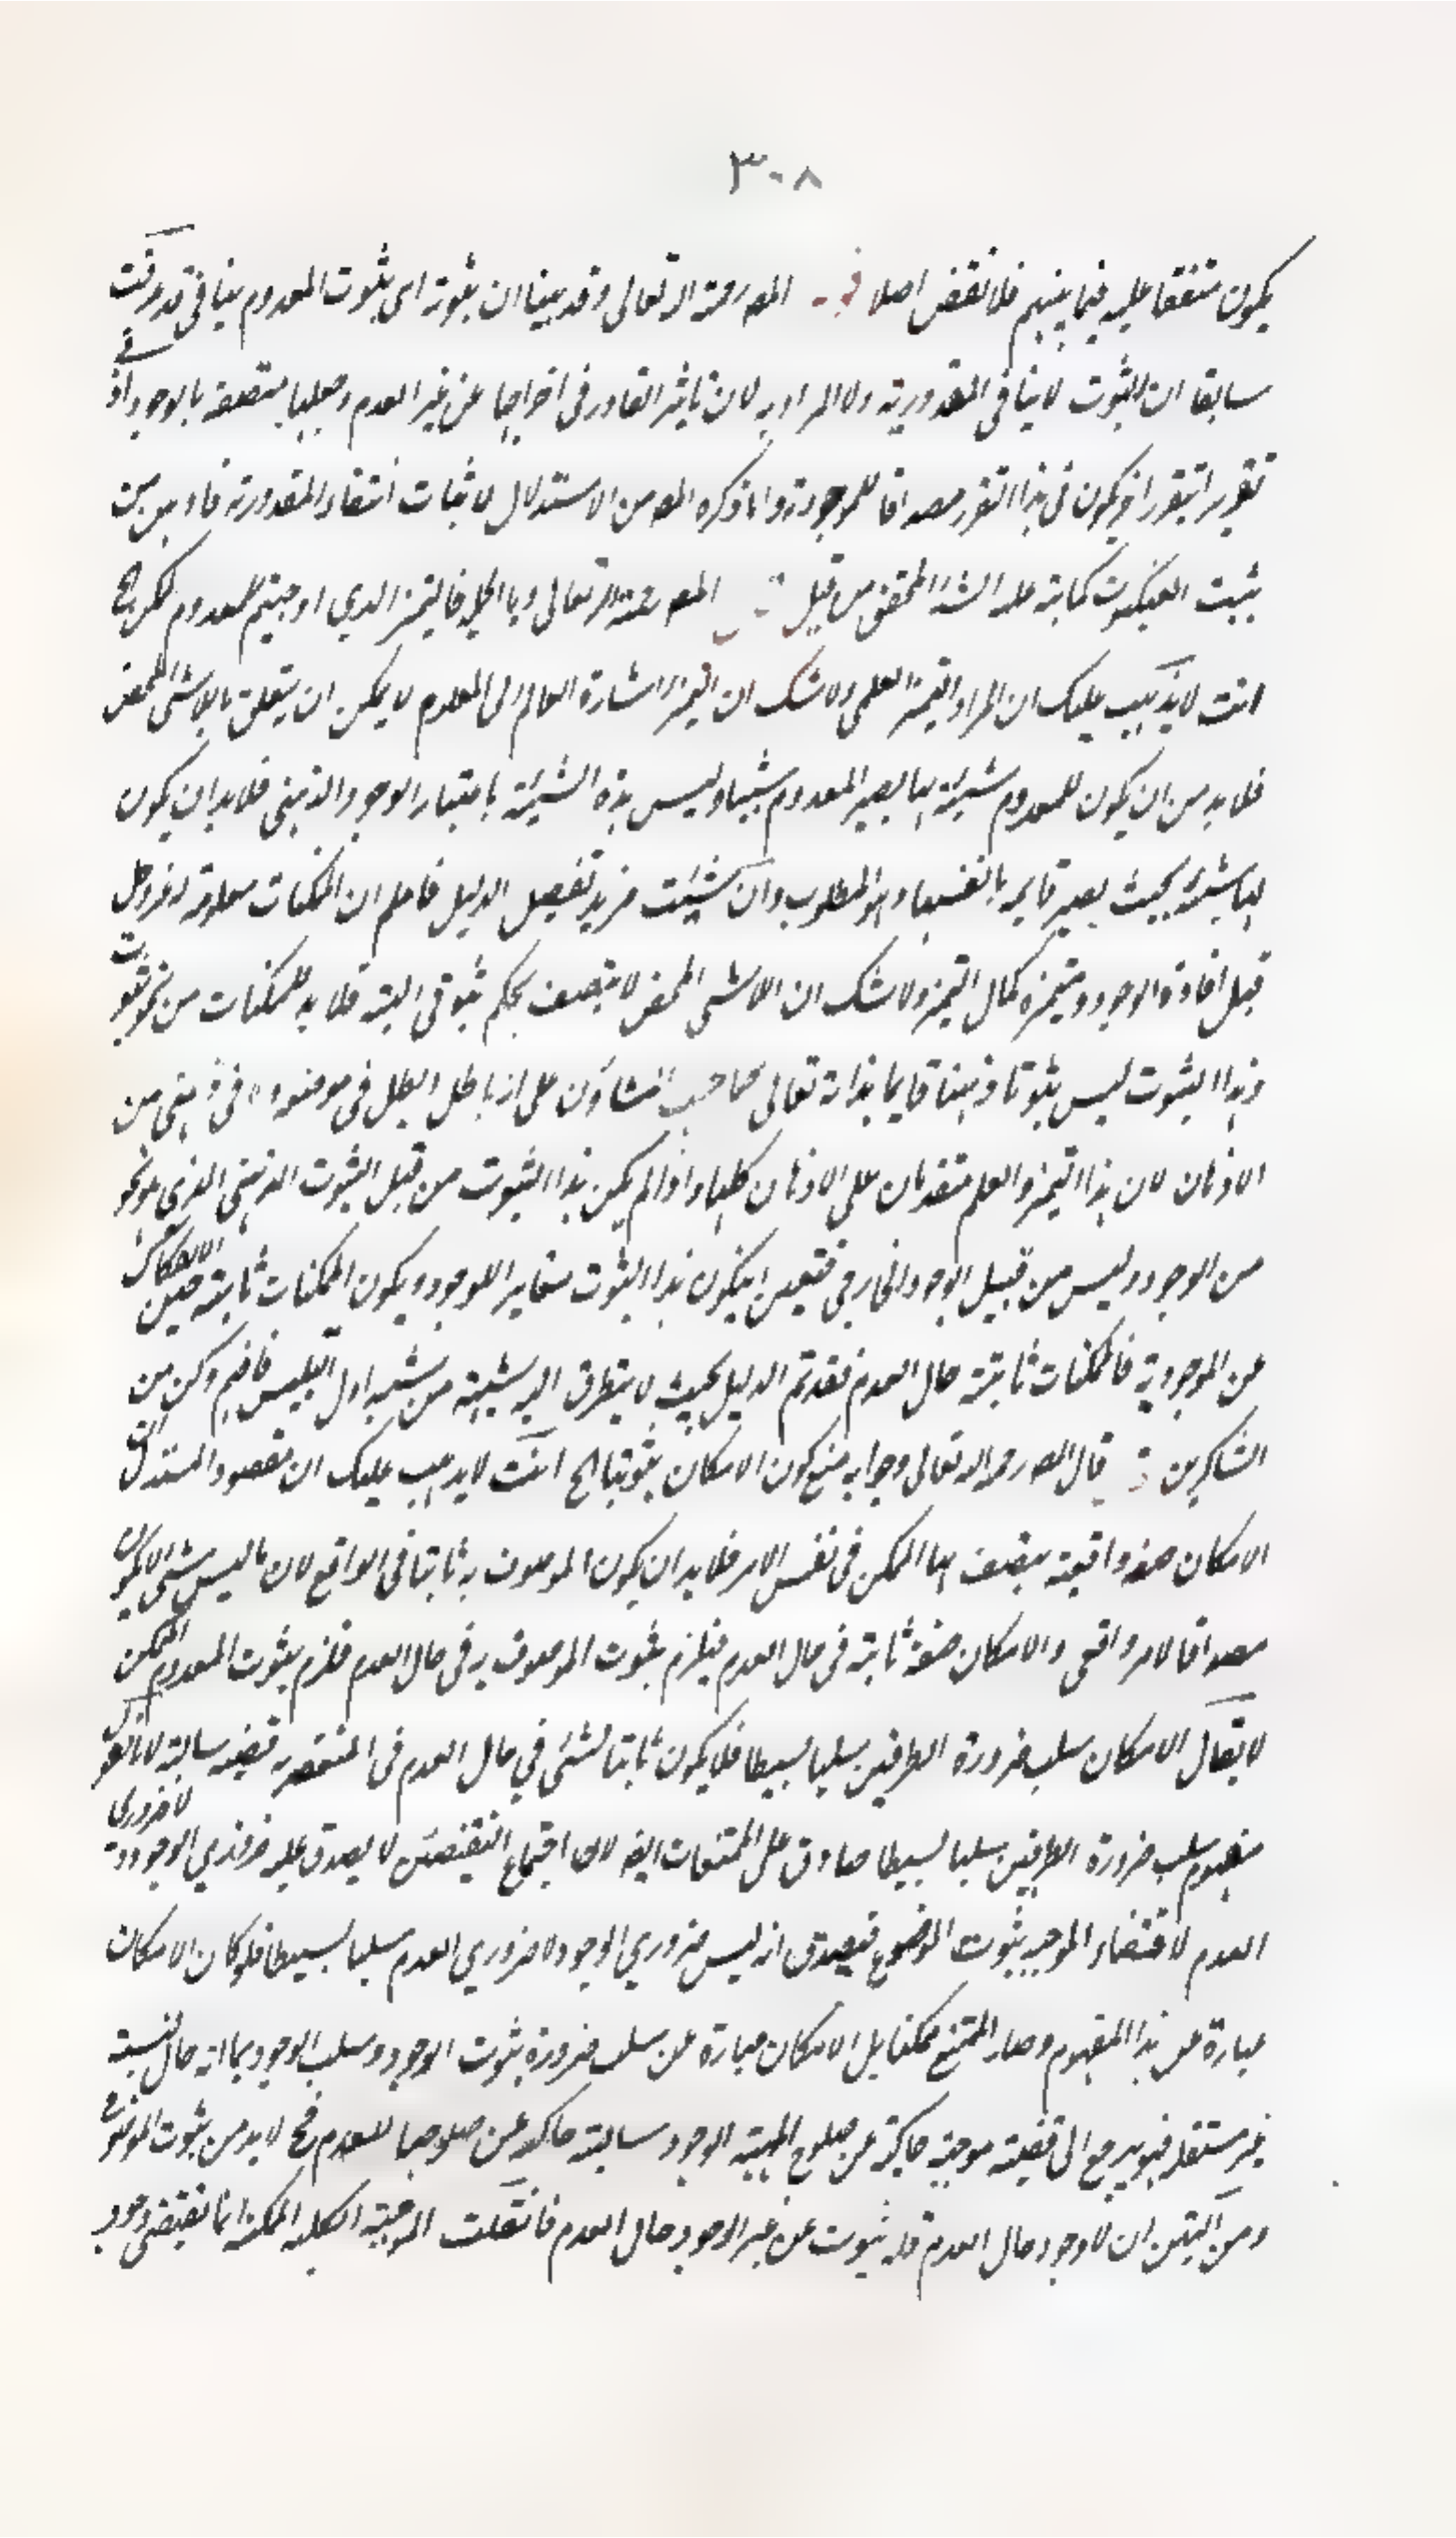 ٣٠٨
يكون متفقا عليه فيما بينهم فلا نقض اصلا المص رحمة الله تعالى وقد بينا ان ثبوته اى ثبوت المعدوم ينافى قد عرفت
سابقا ان الثبوت لا ينافى المقدورية ولا المراد به لان تاثير القادر فى اخراجها عن غير العدم وجعلها متصفة بالوجود اذ فى
تقرير اتقررا فيكون فى هذا التقرر مصداقا للموجودة واما ذكره المص من الاستدلال لاثبات انتفاء المقدورية فاوهن من
بيت العنكبوت كما نبه عليه الشه المحقق من قبل المص رحمة الله تعالى وبالجملة فالتميز الذي اوجبتم للمعدوم
انت لا يذهب عليك ان المراد التميز العلمى ولا شك ان التميز اشارة العالم الى المعلوم لا يمكن ان يتعلق بالاشى المحض
فلا بد من ان يكون للمعدوم شيئية بها يصير المعدوم شيئا وليس هذه الشيئية باعتبار الوجود الذهنى فلا بد ان يكون
لها شيئية بحيث يصير قايمه بانفسها وهو المطلوب وان شيئت مزيد تفصيل الدليل فاعلم ان الممكنات معلومة له عز وجل
قبل افادة الوجود ومتميزه كمال التميز ولا شك ان الاشى المحض لا يتصف بحكم ثبوتى البتة فلا بد للممكنات من نحو ثبوت
وهذا الثبوت ليس ثبوتا ذهنيا قايما بذاته تعالى على انه باطل ابطل فى موضعه ولا فى ذهنى من
الاذهان لان هذا التميز والعلم متقدمان على الاذهان كلها واذا لم يكن هذا الثبوت من قبل الثبوت الذهنى الذى هو نحو
من الوجود وليس من قبيل الوجود الخارجى فتعين ان يكون هذا الثبوت مغايرا للوجود ويكون الممكنات ثابتة حين الانفكاك
عن الموجودية فالممكنات ثابتة حال العدم فقد تم الدليل بحيث لا يتطرق اليه شبهة من شبه اول ابليس فافهم وكن من
الشاكرين قال المص رحمه الله تعالى وجوابه منع كون الامكان ثبوتيا الخ انت لا يذهب عليك ان مقصود المستدل ان
الامكان صفة واقعية يتصف بها الممكن فى نفس الامر فلا بد ان يكون الموصوف به ثابتا فى الواقع لان ما ليس بشى لا يكون
مصداقا لامر واقعى والامكان صفة ثابتة فى حال العدم فيلزم ثبوت الموصوف به فى حال العدم فلزم ثبوت المعدوم الممكن
لا يقال الامكان سلب ضرورة الطرفين سلبا بسيطا فلا يكون ثابتا لشئ في حال العدم فى قضيه سالبة لانا نقول
مفهوم سلب ضرورة الطرفين سلبا بسيطا صادق على الممتنعات ايضا لان اجتماع النقيضين لا يصدق عليه ضروري الوجود ولا ضروري
العدم لاقتضاء الموجبه ثبوت الموضوع فيصدق انه ليس ضروري الوجود ولا ضروري العدم سلبا بسيطا فلو كان الامكان
عبارة عن هذا المفهوم وصار الممتنع ممكنا بل الامكان عبارة عن سلب ضرورة ثبوت الوجود وسلب الوجود بما انه حال نسبة
غير مستقله فهو يرجع الى قضية موجبة حاكية عن صلوح المهية الوجود سالبته حاكيه عن صلوحها للعدم فح لا بد من ثبوت الموضوع
ومن اليقين ان لا وجود حال العدم فله ثبوت عن غير الوجود حال العدم فان قلت الموجبة الممكنة انما تقتضى وجود